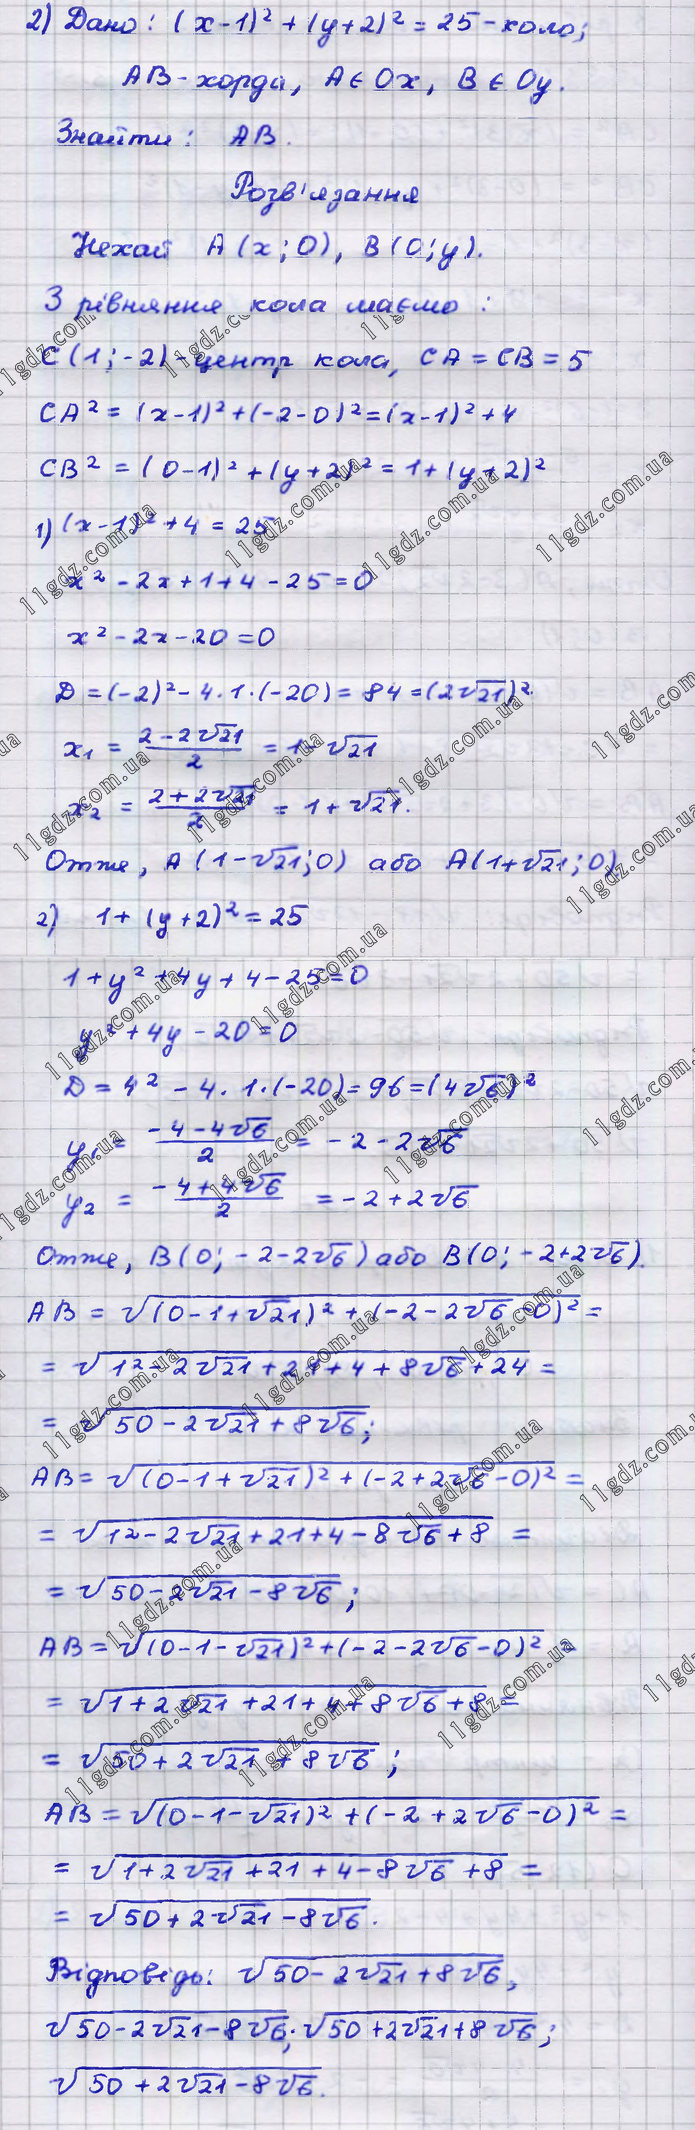 2) Дано: (x-1)² + (y+2)² = 25 - коло;
AB - хорда, A ∈ Ox, B ∈ Oy.
Знайти: AB.
Розв'язання
Нехай A(x; 0), B(0; y).
З рівняння кола маємо:
C(1; -2) - центр кола, CA = CB = 5
CA² = (x-1)² + (-2-0)² = (x-1)² + 4
CB² = (0-1)² + (y+2)² = 1 + (y+2)²
1) (x-1)² + 4 = 25
x² - 2x + 1 + 4 - 25 = 0
x² - 2x - 20 = 0
D = (-2)² - 4·1·(-20) = 84 = (2√21)².
x₁ = (2-2√21)/2 = 1-√21
x₂ = (2+2√21)/2 = 1+√21.
Отже, A(1-√21; 0) або A(1+√21; 0)
2) 1 + (y+2)² = 25
1 + y² + 4y + 4 - 25 = 0
y² + 4y - 20 = 0
D = 4² - 4·1·(-20) = 96 = (4√6)²
y₁ = (-4-4√6)/2 = -2-2√6
y₂ = (-4+4√6)/2 = -2+2√6
Отже, B(0; -2-2√6) або B(0; -2+2√6).
AB = √((0-1+√21)² + (-2-2√6-0)²) =
= √(1²-2√21+21+4+8√6+24) =
= √(50-2√21+8√6);
AB = √((0-1+√21)² + (-2+2√6-0)²) =
= √(1²-2√21+21+4-8√6+8) =
= √(50-2√21-8√6);
AB = √((0-1-√21)² + (-2-2√6-0)²) =
= √(1+2√21+21+4+8√6+8) =
= √(50+2√21+8√6);
AB = √((0-1-√21)² + (-2+2√6-0)²) =
= √(1+2√21+21+4-8√6+8) =
= √(50+2√21-8√6).
Відповідь: √(50-2√21+8√6),
√(50-2√21-8√6); √(50+2√21+8√6);
√(50+2√21-8√6).
11gdz.com.ua